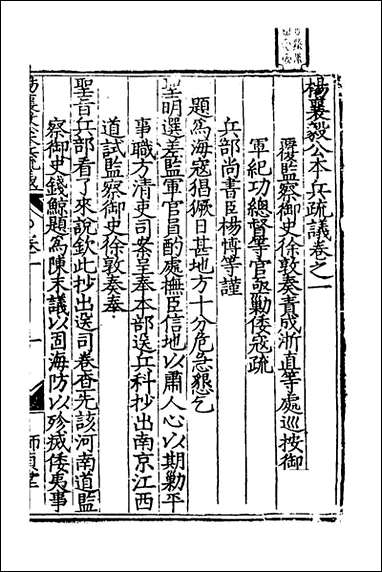 楊襄毅公本兵疏議卷之一
覆監察御史徐敦奏責成浙直等處巡按御
軍紀功總督等官亟勦倭寇疏
兵部尚書臣楊博等謹
題為海寇猖獗日甚地方十分危急懇乞
聖明選差監軍官員酌處撫臣信地以肅人心以期勦平
事職方清吏司案呈奉本部送兵科抄出南京江西
道試監察御史徐敦奏奉
聖旨兵部看了來說欽此抄出送司卷查先該河南道監
察御史錢鯨題為陳末議以固海防以殄掃倭夷事